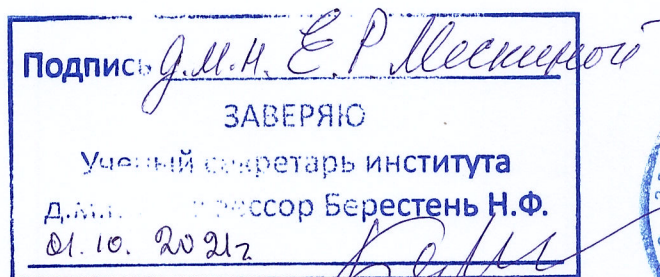 Подпись д.м.н. Е.Р. Мескиной
ЗАВЕРЯЮ
Ученый секретарь института
д.м.н. профессор Берестень Н.Ф.
01.10.2021г